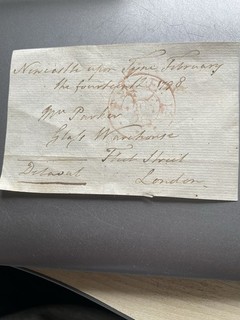 Newcastle upon Tyne February
the fourteenth 1798
Mr Parker
Warehouse
Fleet Street
Delaval London